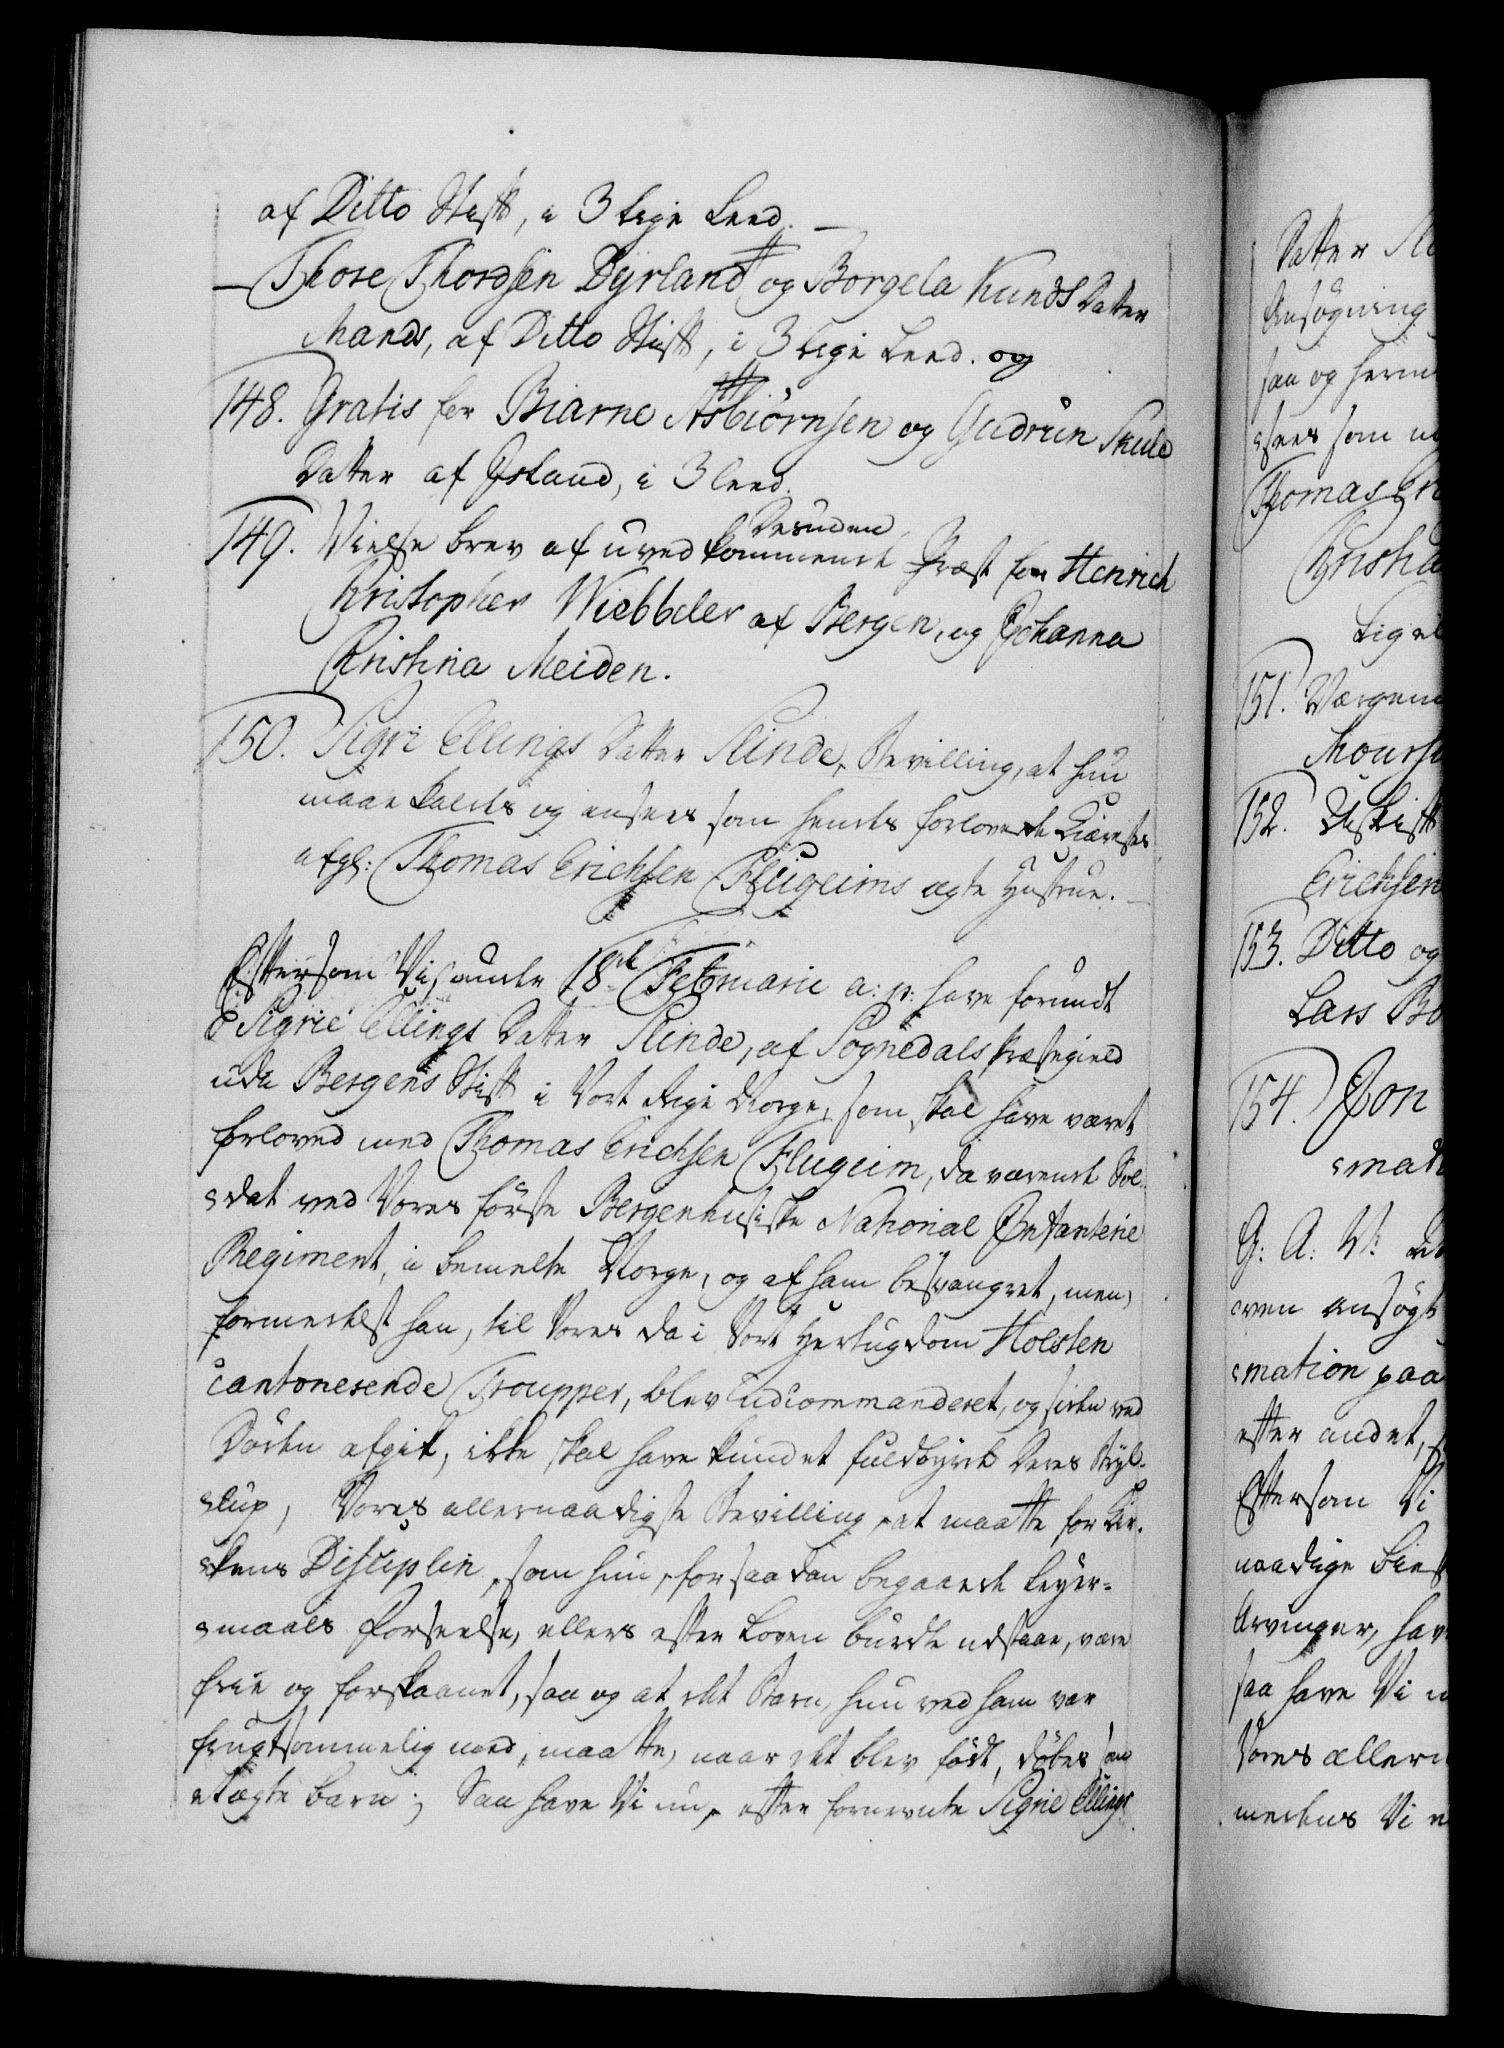 af Ditto Stift, i 3 lige Leed.
Thore Thordsen Dyrland og Borgela KundsDatter
Mands, af Ditto Stift, i 3 lige Leed. og
148. Gratis for Biarne Asbiörnsen og Gudrun Skule
Datter af Ysland, i 3 Leed.
149. Vielse brev af uvedkommende Præst for Henrich
Desuden
Christopher Wiebbeler af Bergen, og Johanna
Christina Meiden.
150. Sigri Ellings Datter Slinde, Bevilling, at hun
maae kaldes og ansees som hendes forlovede Kiæreste
afgl: Thomas Erichsen Flugeims ægte Hustrue.
Eftersom Vi under 18de Februarii a: p: have forundt
Sigrie Ellings Datter Slinde, af Sognedals Præstegield
udi Bergens Stift i Vort Rige Norge, som skal have været
forloved med Thomas Erichsen Flugeim, da værende Sol-
dat ved Vores förste Bergenhusiske National Infanterie
Regiment, i bemelte Norge, og af ham besvangret, men,
formedelst han, til Vores da i Vort Hertugdom Holsten
cantonerende Troupper, blev udcommanderet, og siden ved
Döden afgik, ikke skal have kundet fuldbyrde Deres Bryl-
lup, Vores allernaadigste Bevilling, at maatte for Kir-
kens Disciplin, som hun, for saadan begaaede Leyer-
maals Forseelse, ellers efter Loven burde udstaae, være
frie og forskaanet, saa og at det Barn, hun ved ham var
frugtsommelig med, maatte, naar det blev födt, döbes som
et ægte barn; Saa have Vi nu, efter fornevnte Sigrie Ellings
Datter
Ansögning
saa og herm
sees som
Thomas Er
Christia
Lige
151. Værgem
Moursu
152. Uskift
Erichsen
153. Ditto og
Lars Bo
154. Jon
mati
G: A: V:
ven ansögt
mation paa
efter andet,
Eftersom Vi
naadige
Arvinger, hav
saa have Vi
Vores allern
medens Vi